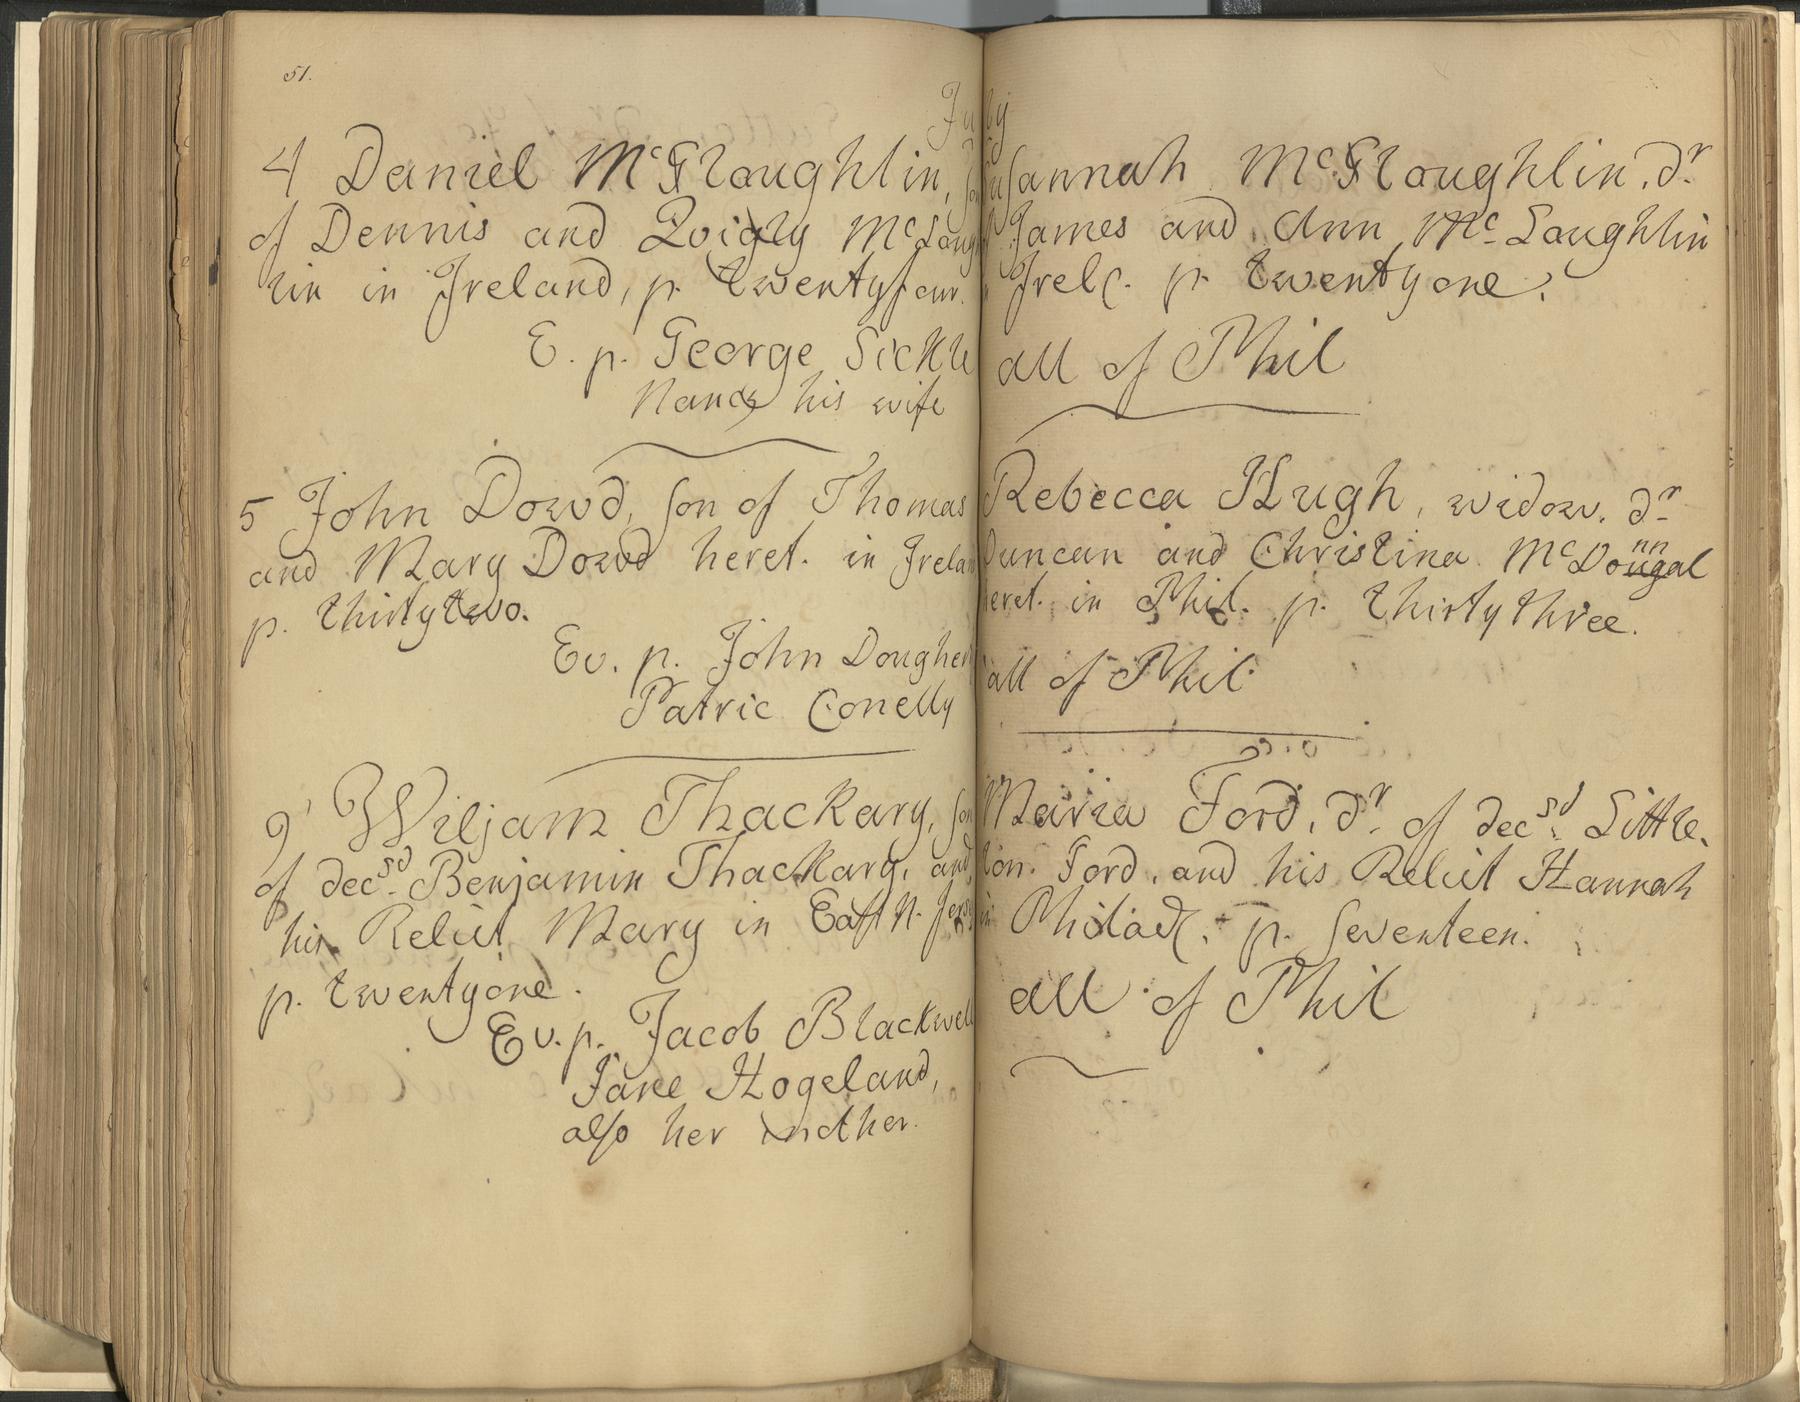 51.
July
4 Daniel McFloughlin, son
of Dennis and Quigly McLaugh
lin in Ireland, p. twentyfour.
E. p. George Sickle
Nancy his wife
5 John Dowd, son of Thomas
and Mary Dowd heret. in Irelan
p. thirtytwo.
Ev. p. John Dougher
Patric Conelly
9 Wiljam Thackary, son
of decsd. Benjamin Thackary, and
his Relict Mary in East N. Jers
p. twentyone.
Ev. p. Jacob Blackwell
Jane Hogeland,
also her mother.
Susannah McFloughlin, dr.
James and Ann Mc Laughlin
Irel. p. twentyone.
all of Phil
Rebecca Hugh, widow. dr
Duncan and Christina McDougal
nn
heret. in Phil. p. thirtythree.
all of Phil
Maria Ford, dr. of decsd. Little
ton. Ford, and his Relict Hannah
in Philad. p. seventeen.
all of Phil